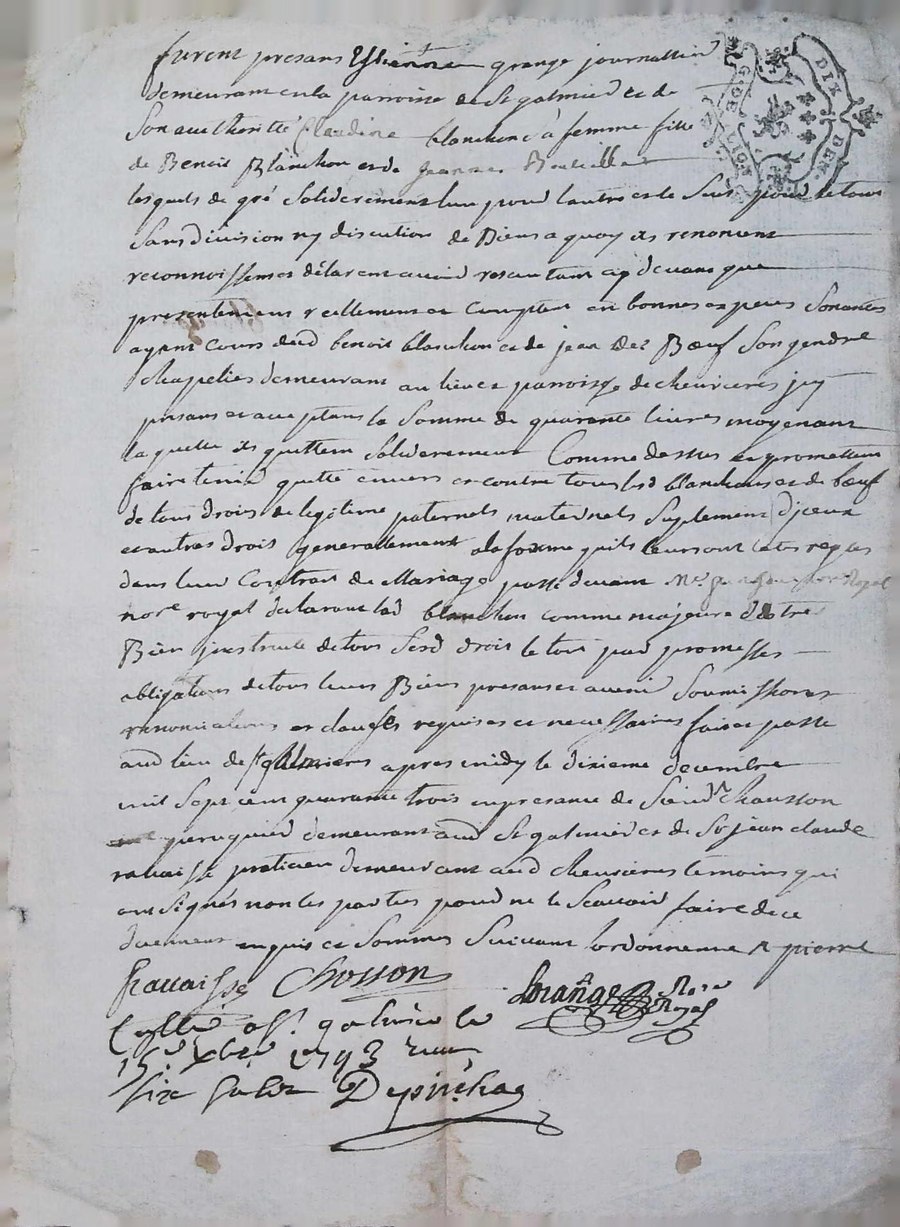 furent presans Estienne grange journallier
demeurant en la parroisse de St galmier et de
Son authorité Claudine blanchon sa femme fille
de Benoit Blanchon et de Jeanne
lesquels de gré Soliderement lun pour lautre et le Seul pour le tout
Sans division ny discution de Biens a quoy ils renoncent
reconnoissent et déclarent avoir reseu tant cy devant que
presentement reellement et comptant en bonnes especes Sonantes
ayant cours dud benoit blanchon et de jean De Bœuf Son gendre
chapelier demeurant au lieu et parroisse de chevrieres icy
presans et aceptans la Somme de quarante livres moyenant
laquelle ils quittent soliderement Comme dessus et promettent
faire tenir quitte envers et contre tous lesd blanchon et de bœuf
de tous droits de legitime paternels maternels Suplement d'jceux
et autres droits generallement a la forme quils leurs ont etes regles
dans leur Contrat de Mariage passé devant Me
nore royal de la lad blanchon comme majeure
Bien instruite de tous Sesd droits le tout par promesses
obligations de tous leurs Biens presans et avenir Soumissions
renonciations et clauses requises et necessaires fait et passé
aud lieu de St galmier apres midy le dixieme decembre
mil Sept cent quarante trois en presance de Sieur Chausson
peruquier demeurant aud St galmier et de Sr jean claude
ravaisse praticien demeurant aud chevrieres temoins qui
ont Signés non les parties pour ne le Scavoir faire de ce
duement enquis et Sommes Suivant lordonnenne
ravaisse Chosson Lorange Nore Royal
St galmier le
15e xbre 1743 recu
Six
DIX DEN
G. DE LION